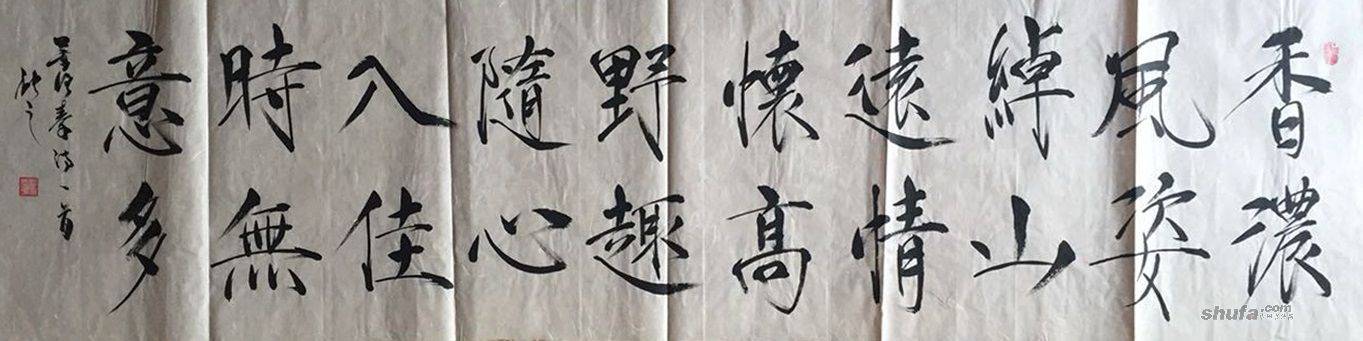 香濃
風姿
綽山
遠情
懷高
野趣
隨心
入佳
時無
意多
诗一首
shufa.com